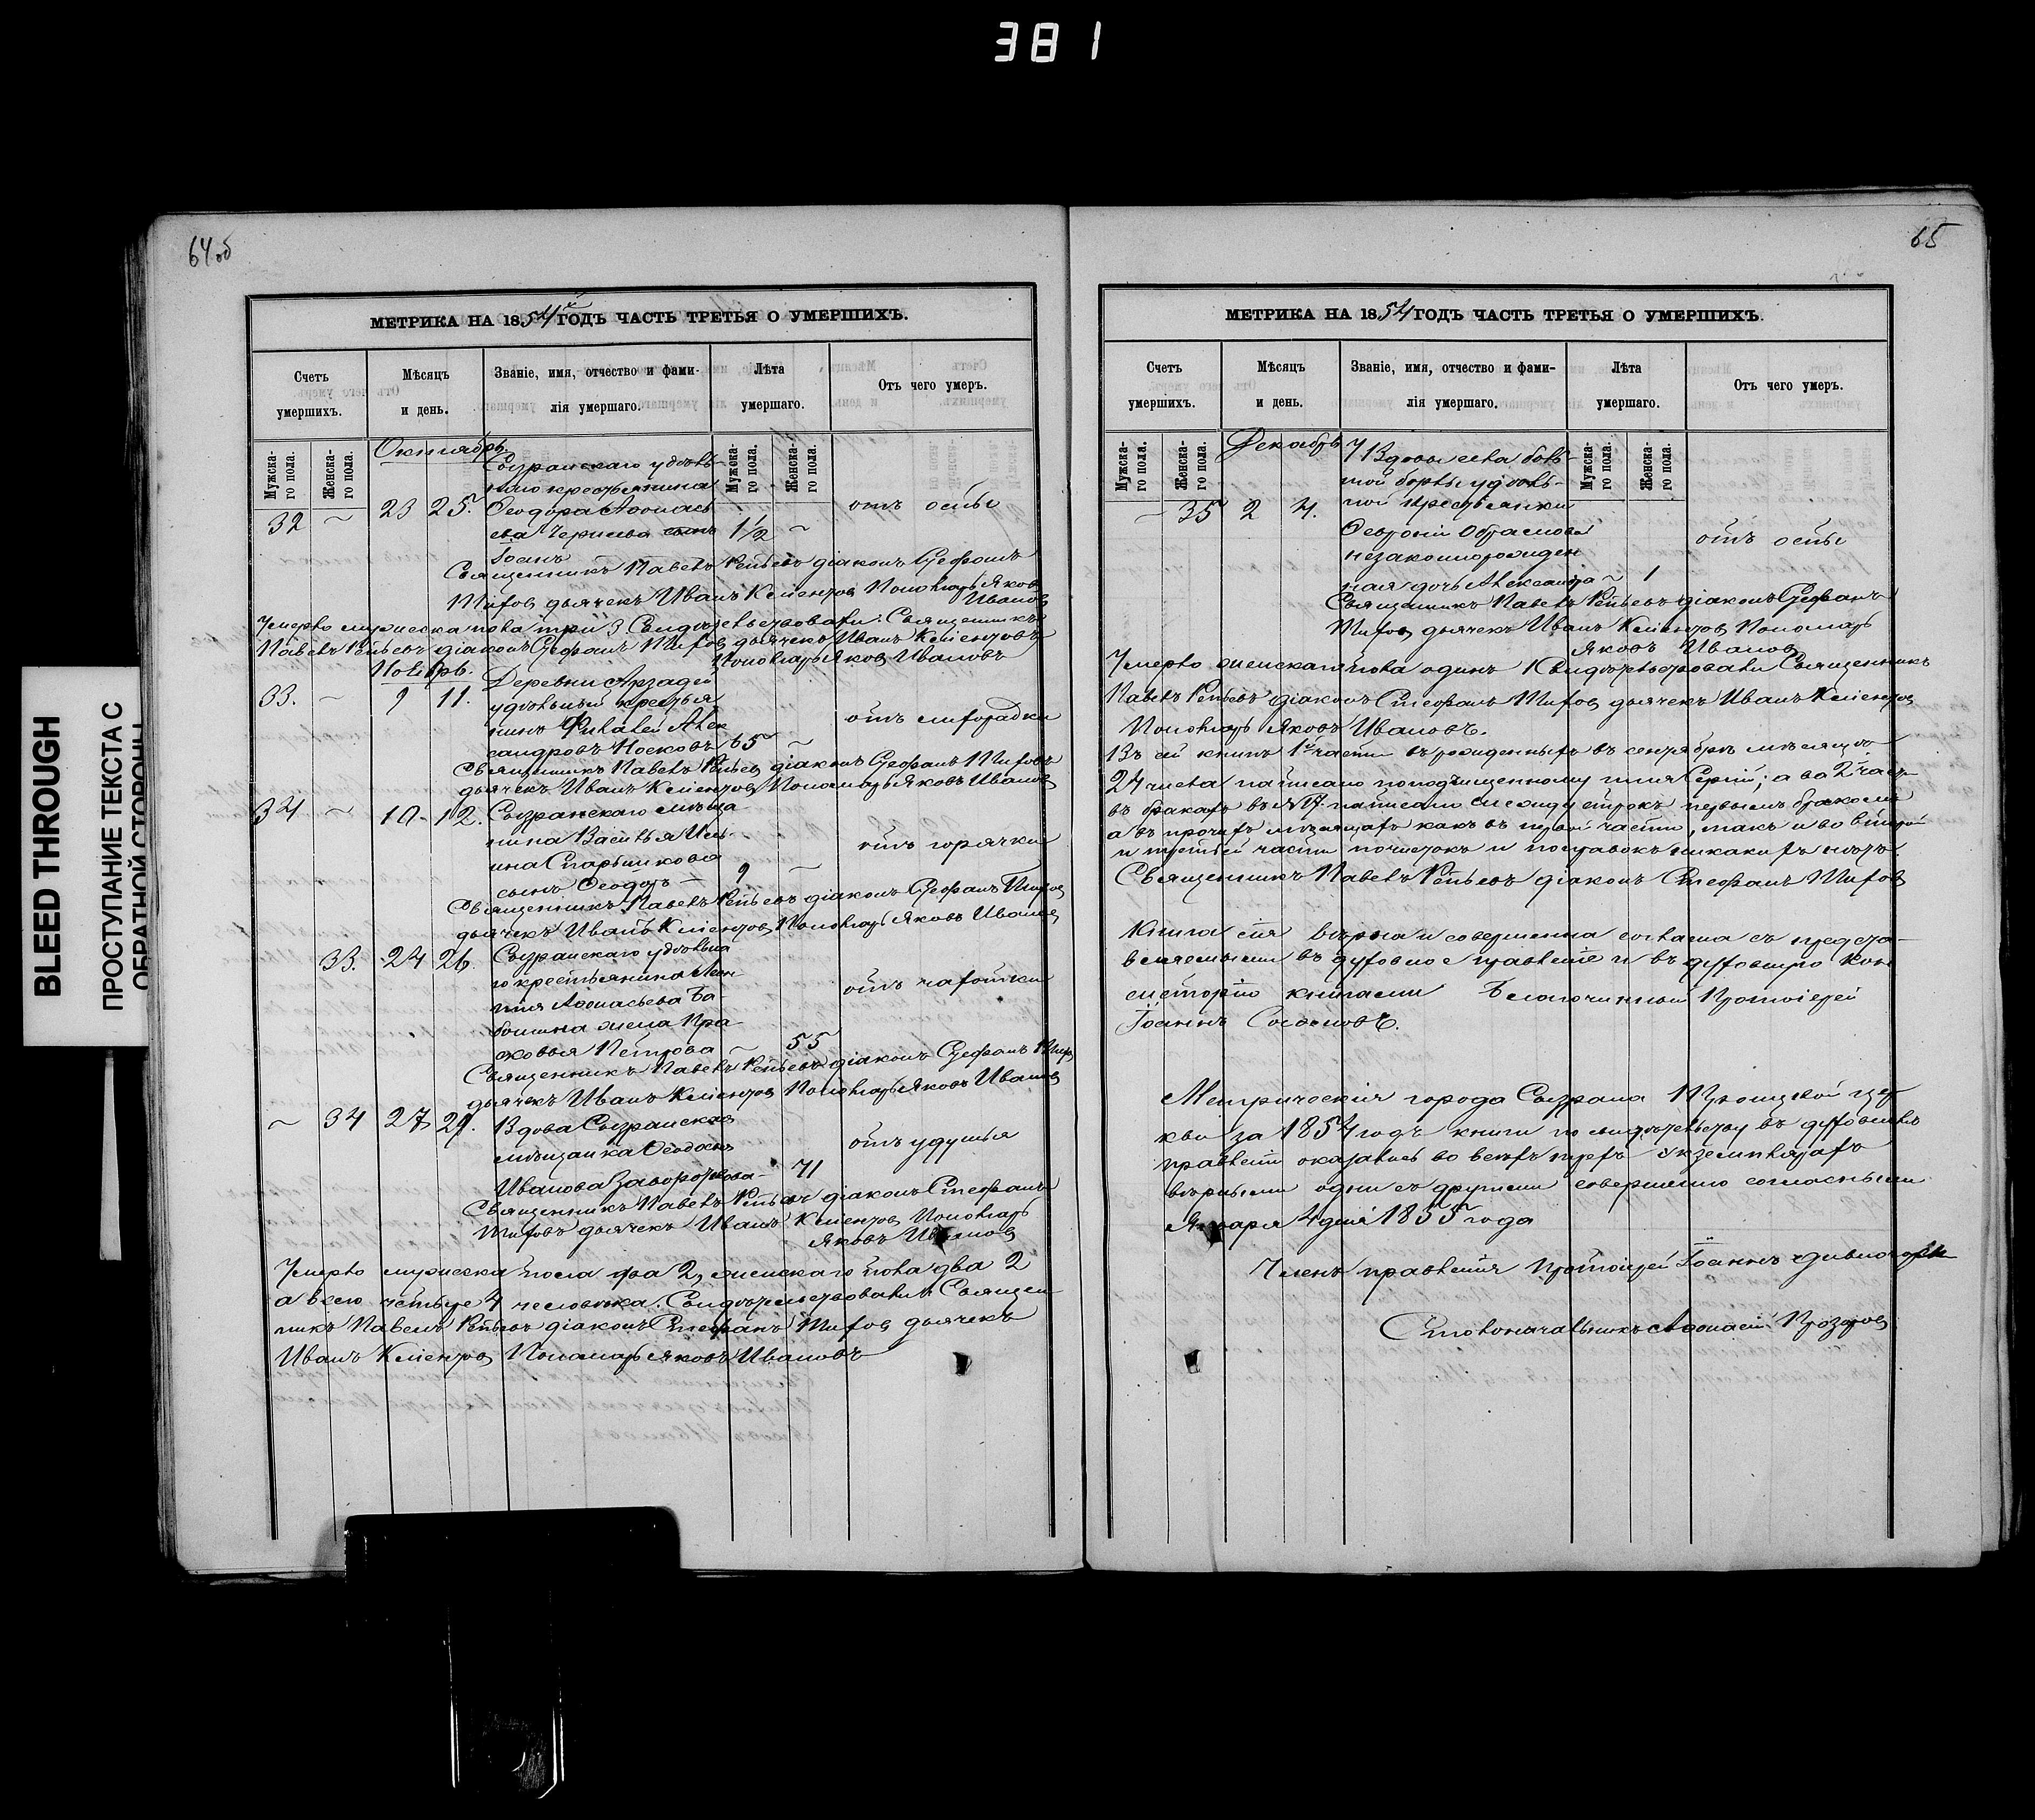 381
BLEED THROUGH
ПРОСТУПАНИЕ ТЕКСТА С
ОБРАТНОЙ СТОРОНЫ
64 об
МЕТРИКА НА 1854й ГОДЪ ЧАСТЬ ТРЕТЬЯ О УМЕРШИХЪ.
Счетъ умершихъ.
Мѣсяцъ и день.
Званіе, имя, отчество и фами-
лія умершаго.
Лѣта умершаго.
Отъ чего умеръ.
Мужска-
го пола.
Женска-
го пола.
Мужска-
го пола.
Женска-
го пола.
Октябрь
Сызранскаго удѣль-
наго крестьянина
32 ~ 23 25. Ѳеодора Аѳонась
ева Чернева сынъ 1½ ~ отъ оспы
Іоанъ
Священникъ Павелъ Репьевъ діаконъ Стефанъ
Тифовъ дьячекъ Иванъ Клiентовъ Пономарь Яковъ
Ивановъ
Умерло мужеска пола три 3. Свидѣтельствовали: Священникъ
Павелъ Репьевъ діаконъ Стефанъ Тифовъ дьячекъ Иванъ Клiентовъ
Пономарь Яковъ Ивановъ
Ноябрь.
33. ~ 9 11. Деревни
удѣльный крестья
нинъ Филатей Алек
сандровъ Носковъ 65 ~ отъ лихорадки
Священникъ Павелъ Репьевъ діаконъ Стефанъ Тифовъ
дьячекъ Иванъ Клiентовъ Пономарь Яковъ Ивановъ
34 ~ 10 12. Сызранскаго мѣща
нина Василья Иль
ина Старикова
сынъ Ѳеодоръ 9 ~ отъ горячки
Священникъ Павелъ Репьевъ діаконъ Стефанъ Тифовъ
дьячекъ Иванъ Клiентовъ Пономарь Яковъ Ивановъ
33. 24 26. Сызранскаго удѣльна
го крестьянина
Аѳонасьева Ба-
жена Пра
сковья Петрова ~ 55 отъ чахотки
Священникъ Павелъ Репьевъ діаконъ Стефанъ Тифовъ
дьячекъ Иванъ Клiентовъ Пономарь Яковъ Ивановъ
~ 34 27 29. Вдова Сызранская
мѣщанка Ѳеодосья
Иванова 71 отъ удушья
Священникъ Павелъ Репьевъ діаконъ Стефанъ
Тифовъ дьячекъ Иванъ Клiентовъ Пономарь
Яковъ Ивановъ
Умерло мужеска пола два 2, женскаго пола два 2
а всего четыре 4 человѣка. Свидѣтельствовали Священ
никъ Павелъ Репьевъ діаконъ Стефанъ Тифовъ дьячекъ
Иванъ Клiентовъ Пономарь Яковъ Ивановъ
65
МЕТРИКА НА 1854 ГОДЪ ЧАСТЬ ТРЕТЬЯ О УМЕРШИХЪ.
Счетъ умершихъ.
Мѣсяцъ и день.
Званіе, имя, отчество и фами-
лія умершаго.
Лѣта умершаго.
Отъ чего умеръ.
Мужска-
го пола.
Женска-
го пола.
Мужска-
го пола.
Женска-
го пола.
Декабрь
У Вдовы села боль-
шой борлы удѣль-
~ 35 2 4. ной крестьянки
Ѳевроніи отъ оспы
незаконнорожден
ная дочь Александра ~ 1
Священникъ Павелъ Репьевъ діаконъ Стефанъ
Тифовъ дьячекъ Иванъ Клiентовъ Пономарь
Яковъ Ивановъ
Умерло женскаго пола одинъ 1 Свидѣтельствовали Священникъ
Павелъ Репьевъ діаконъ Стефанъ Тифовъ дьячекъ Иванъ Клiентовъ
Пономарь Яковъ Ивановъ.
Въ сей книгѣ 1й части въ рожденныхъ въ сентябрѣ мѣсяцѣ
24 числа написано по подчищенному имя Сергій; а во 2 части
въ бракахъ въ написано между строкъ первымъ бракомъ
а въ прочихъ мѣсяцахъ какъ въ первой части, такъ и во второй
и третьей части почистокъ и поправокъ никакихъ нѣтъ.
Священникъ Павелъ Репьевъ діаконъ Стефанъ Тифовъ
Книга сія вѣрна и совершенна согласна съ предста-
вляемыми въ духовное правленіе и въ духовную Кон
систорію книгами Благочинный Протоіерей
Іоаннъ
Метрическія города Сызрана цер
кви за 1854 годъ книги по свидѣтельству въ духовномъ
правленіи оказались во всѣхъ трехъ экземплярахъ
вѣрными одни съ другими совершенно согласными
Января 4 дня 1855 года
Членъ правленія Протоіерей Іоаннъ Дивногорскій
Столоначальникъ Аѳонасій Прозоровъ